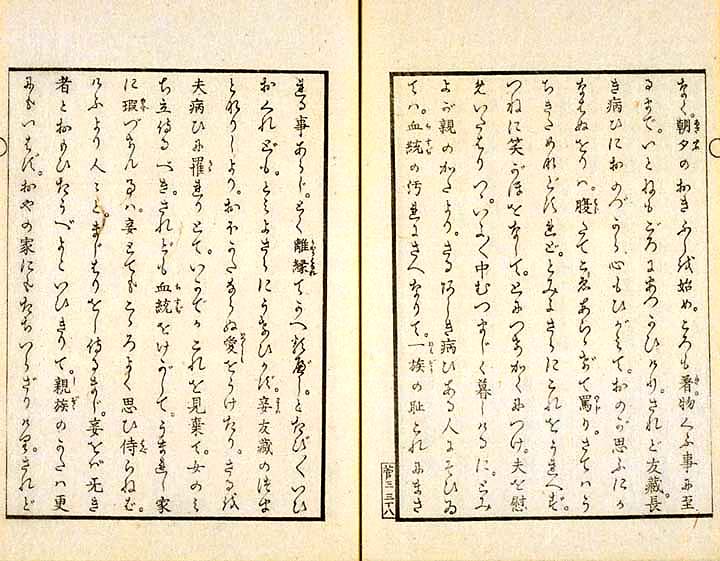 なく。朝夕のおきふしを始め。ころも着物くふ事に至
るまで。いとねもごろにあつかひけり。されど友藏長
き病ひにおのづから心もひがみて。おのが思ふにか
なはぬをりハ。腹たてこゑあらゝげて罵り。さてハう
ちれどすれど。とみよさらにこれをうれへず。
つねに笑がほをなして。とにつきかくにつけ。夫を慰
めいたはりつゝ。いよ〱中むつましく暮しけるに。とみ
よが親のかたより。さるあしき病ひある人にそひゐ
てハ。血統の汚れさへなりて。一族の耻これにまさ
れる事あらじ。とく離縁てかへれかし。とたび〱いひ
おくれども。とみよさらにうけひかず。妾友藏の許に
とつぎしより。おほかたならぬ愛をうけたり。さるを
夫病ひに罹れりとて。いかでかこれを見棄て。女のみ
ち立侍るべき。されども血統をけがして。うまれし家
に瑕つけん事ハ。妾とてもこゝろよく思ひ侍らねば。
けふより人と。まじはりをし侍るまじ。妾をば死き
者とおもひたうべよといひきりて。親族のかたハ更
にもいはず。おやの家にもたちいらざりけり。されど